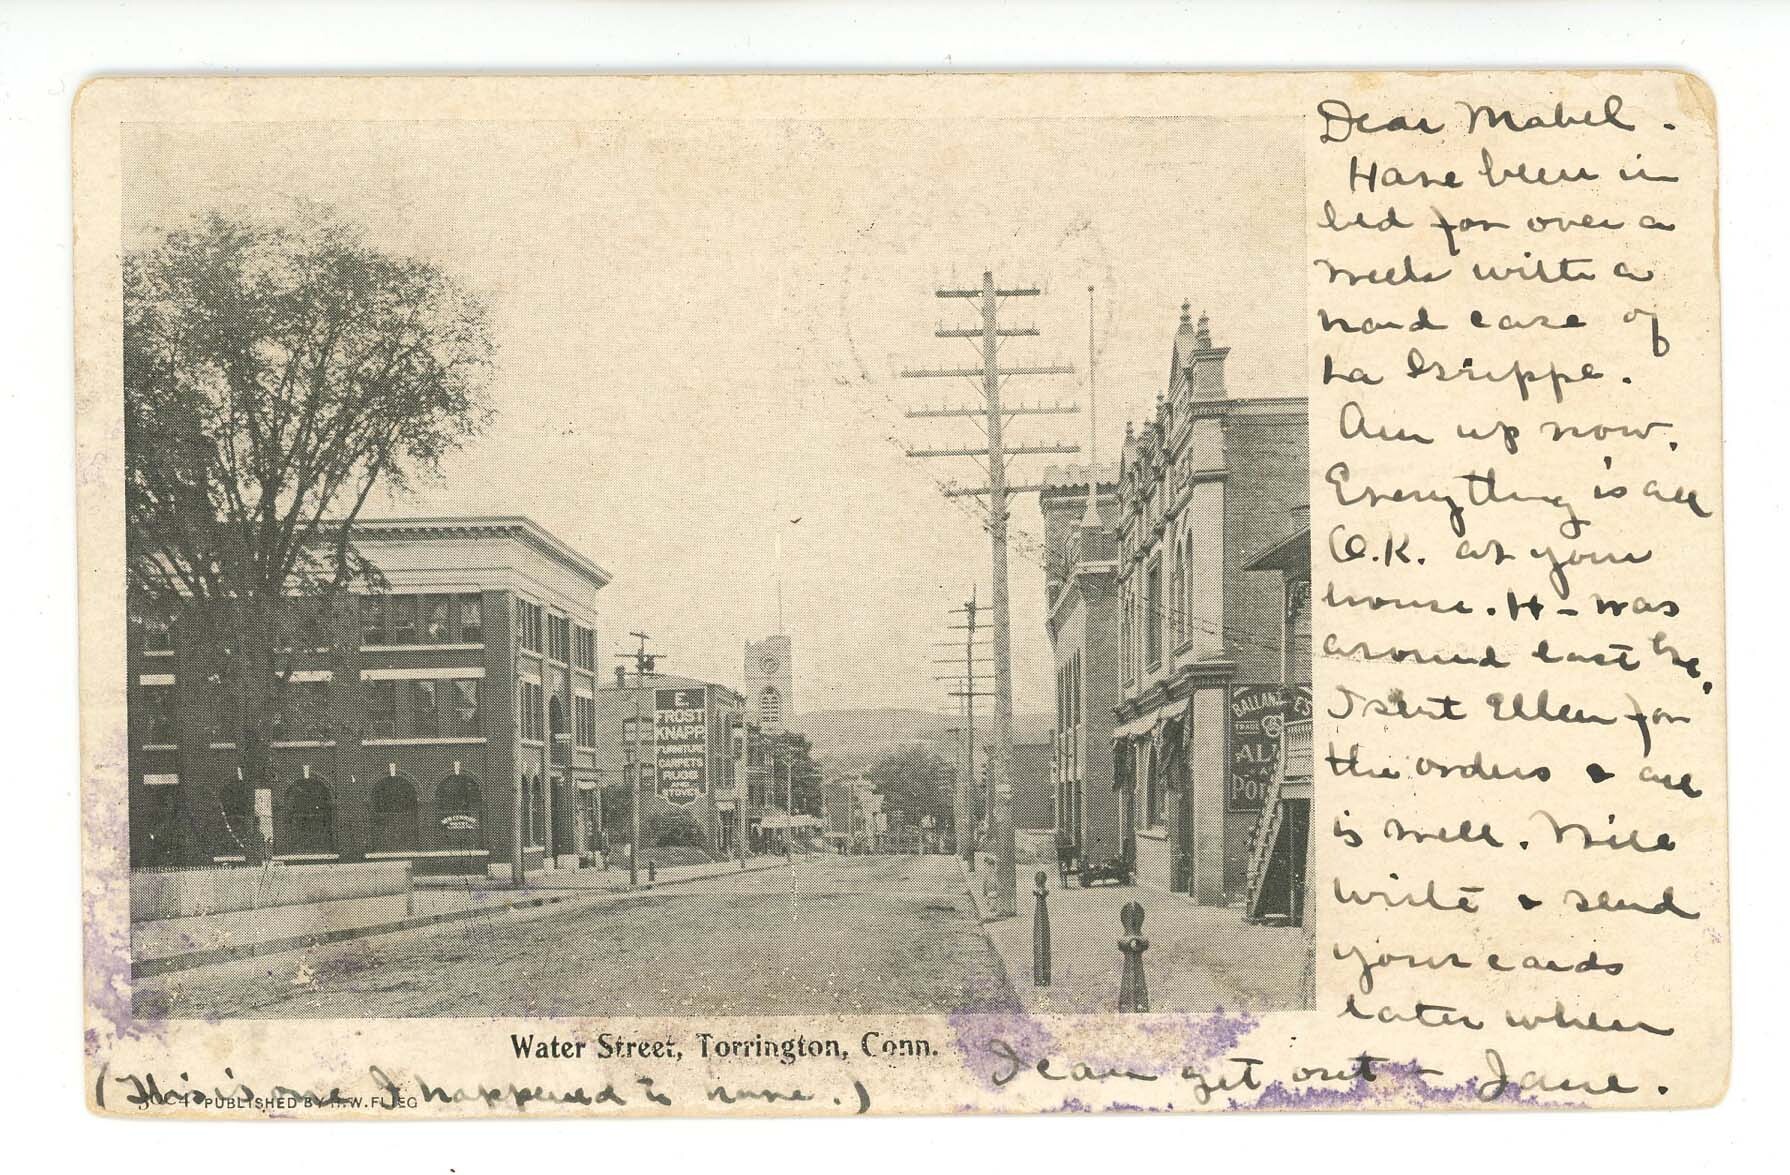 Dear Mabel.
Have been in
bed for over a
week with a
hard case of
La Grippe.
Am up now.
Everything is all
O.K. at your
house. H- was
around last
I sent Ellen for
the orders & all
is well. Will
write & send
your cards
later when
I can get out - Jane.
E.
FROST
KNAPP
FURNITURE
CARPETS
RUGS
AND
STOVES
BALLANTINE'S
TRADE
Water Street, Torrington, Conn.
(This is one I happened to have.)
PUBLISHED BY H.W. FLIEG